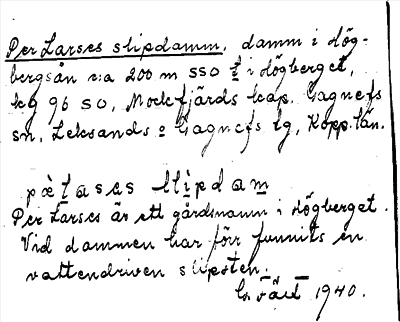 Per Larses slipdamm, damm i Hög-
bergsån c:a 200 m SSO i Högberget,
kg 96 SO, Mockfjärds kap. Gagnefs
sn, Leksands o Gagnefs tg, Kopp. län.
pæ̀ḷases slìpdam
Per Larses är ett gårdsnamn i Högberget.
Vid dammen har förr funnits en
vattendriven slipsten.
1940.